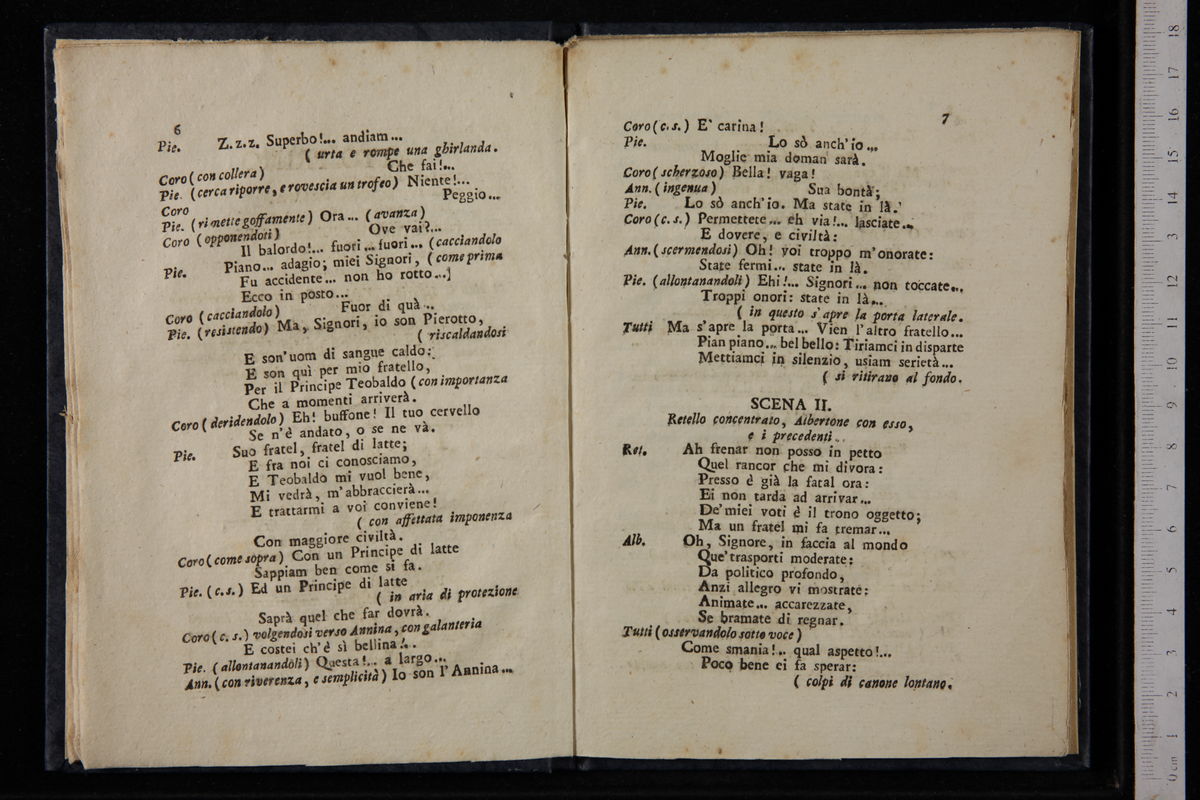 6
Pie. Z.z.z. Superbo!... andiam...
( urta e rompe una ghirlanda.
Coro (con collera) Che fai!...
Pie. (cerca riporre, e rovescia un trofeo) Niente!...
Coro Peggio...
Pie. (rimette goffamente) Ora... (avanza)
Coro (opponendoti) Ove vai?...
Il balordo!... fuori... fuori... (cacciandolo
Pie. Piano... adagio; miei Signori, (come prima
Fu accidente... non ho rotto...]
Ecco in posto...
Coro (cacciandolo) Fuor di quà...
Pie. (resistendo) Ma, Signori, io son Pierotto,
( riscaldandosi
E son'uom di sangue caldo:
E son quì per mio fratello,
Per il Principe Teobaldo (con importanza
Che a momenti arriverà.
Coro (deridendolo) Eh! buffone! Il tuo cervello
Se n'è andato, o se ne và.
Pie. Suo fratel, fratel di latte;
E fra noi ci conosciamo,
E Teobaldo mi vuol bene,
Mi vedrà, m'abbraccierà...
E trattarmi a voi conviene!
( con affettata imponenza
Con maggiore civiltà.
Coro (come sopra) Con un Principe di latte
Sappiam ben come si fa.
Pie. (c.s.) Ed un Principe di latte
( in aria di protezione
Saprà quel che far dovrà.
Coro (c. s.) volgendosi verso Annina, con galanteria
E costei ch'è sì bellina!..
Pie. (allontanandoli) Questa!... a largo...
Ann. (con riverenza, e semplicità) Io son l'Annina...
7
Coro (c. s.) E' carina!
Pie. Lo sò anch'io...
Moglie mia doman sarà.
Coro (scherzoso) Bella! vaga!
Ann. (ingenua) Sua bontà;
Pie. Lo sò anch'io. Ma state in là.
Coro (c. s.) Permettete... eh via!... lasciate..
E dovere, e civiltà:
Ann. (scermendosi) Oh! voi troppo m'onorate:
State fermi... state in là.
Pie. (allontanandoli) Ehi!... Signori... non toccate...
Troppi onori: state in là...
( in questo s'apre la porta laterale.
Tutti Ma s'apre la porta... Vien l'altro fratello...
Pian piano... bel bello: Tiriamci in disparte
Mettiamci in silenzio, usiam serietà...
( si ritirano al fondo.
SCENA II.
Retello concentrato, Albertone con esso,
e i precedenti.
Ret. Ah frenar non posso in petto
Quel rancor che mi divora:
Presso è già la fatal ora:
Ei non tarda ad arrivar...
De'miei voti è il trono oggetto;
Ma un fratel mi fa tremar...
Alb. Oh, Signore, in faccia al mondo
Que'trasporti moderate:
Da politico profondo,
Anzi allegro vi mostrate:
Animate... accarezzate,
Se bramate di regnar.
Tutti (osservandolo sotto voce)
Come smania!.. qual aspetto!...
Poco bene ci fa sperar:
( colpi di canone lontano.
0 cm 1 2 3 4 5 6 7 8 9 10 11 12 13 14 15 16 17 18